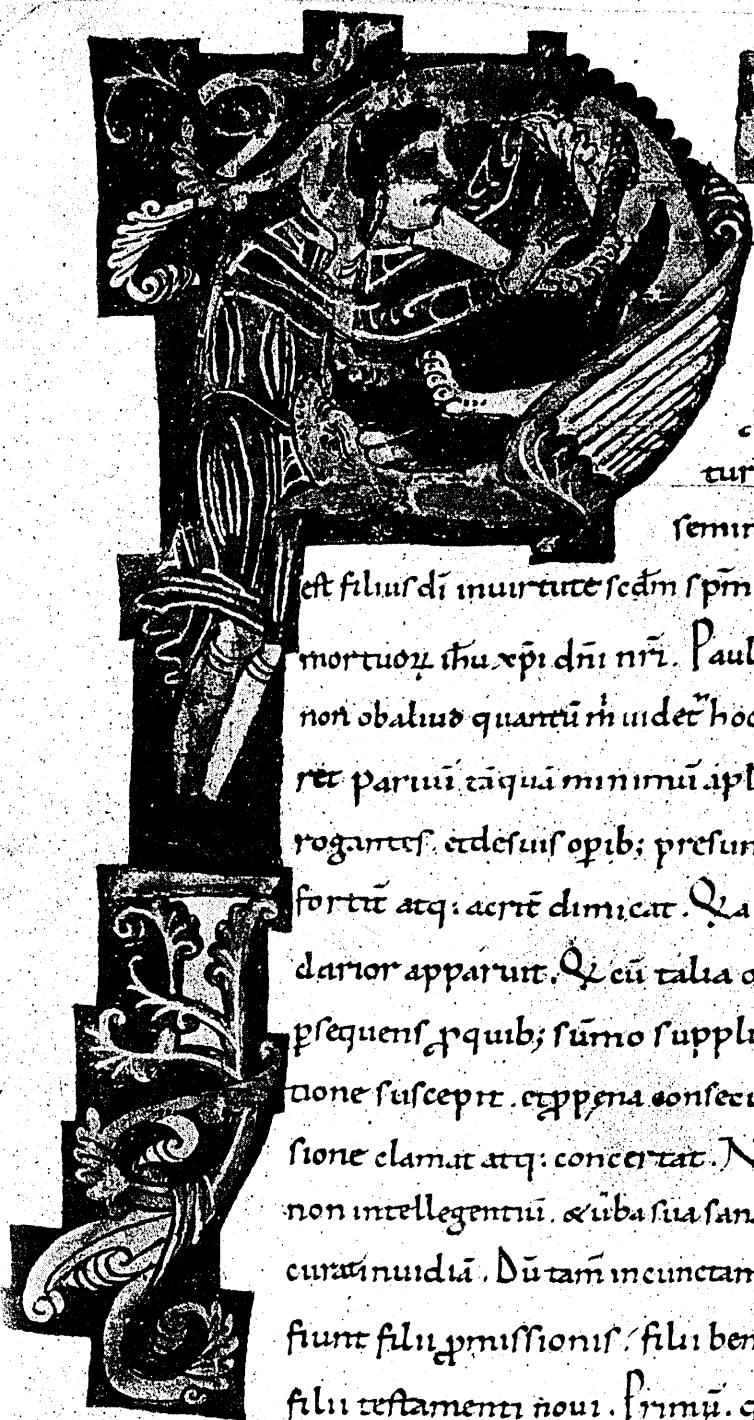 tur
semin
est filius dī inuirtute scdm̄ spm̄
mortuoꝝ ihu xp̄i dn̄i nr̄i. Paul
non obaliud quantū m̍ uidet̃ hoc
ret paruū tāquā minimū apl
rogantes. etdesuis opib; presum
fortit̄ atq: acrit̄ dimicat. Qa
clarior apparuit. Q cū talia
ꝑsequens ꝓquib; sūmo suppli
tione suscepit. etꝓpena consecu
sione clamat atq: concertat. N
non intellegentiū. & ūba sua san
curatinuidiā. Dū tam̄ incunctan
fiunt filii ꝓmissionis. filii ben
filii testamenti noui. Primū.